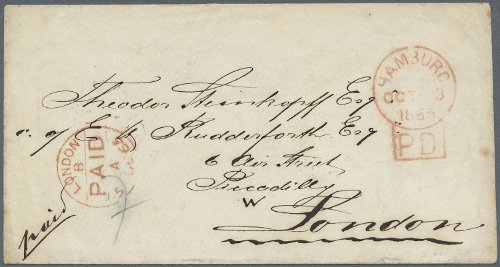 HAMBURG
OCT
1865
PD
Theodor Steinkopff Esq
c. of C. H. Rudderforth Esq
6 Air Street
Piccadilly
W
London
LONDON
PAID
paid